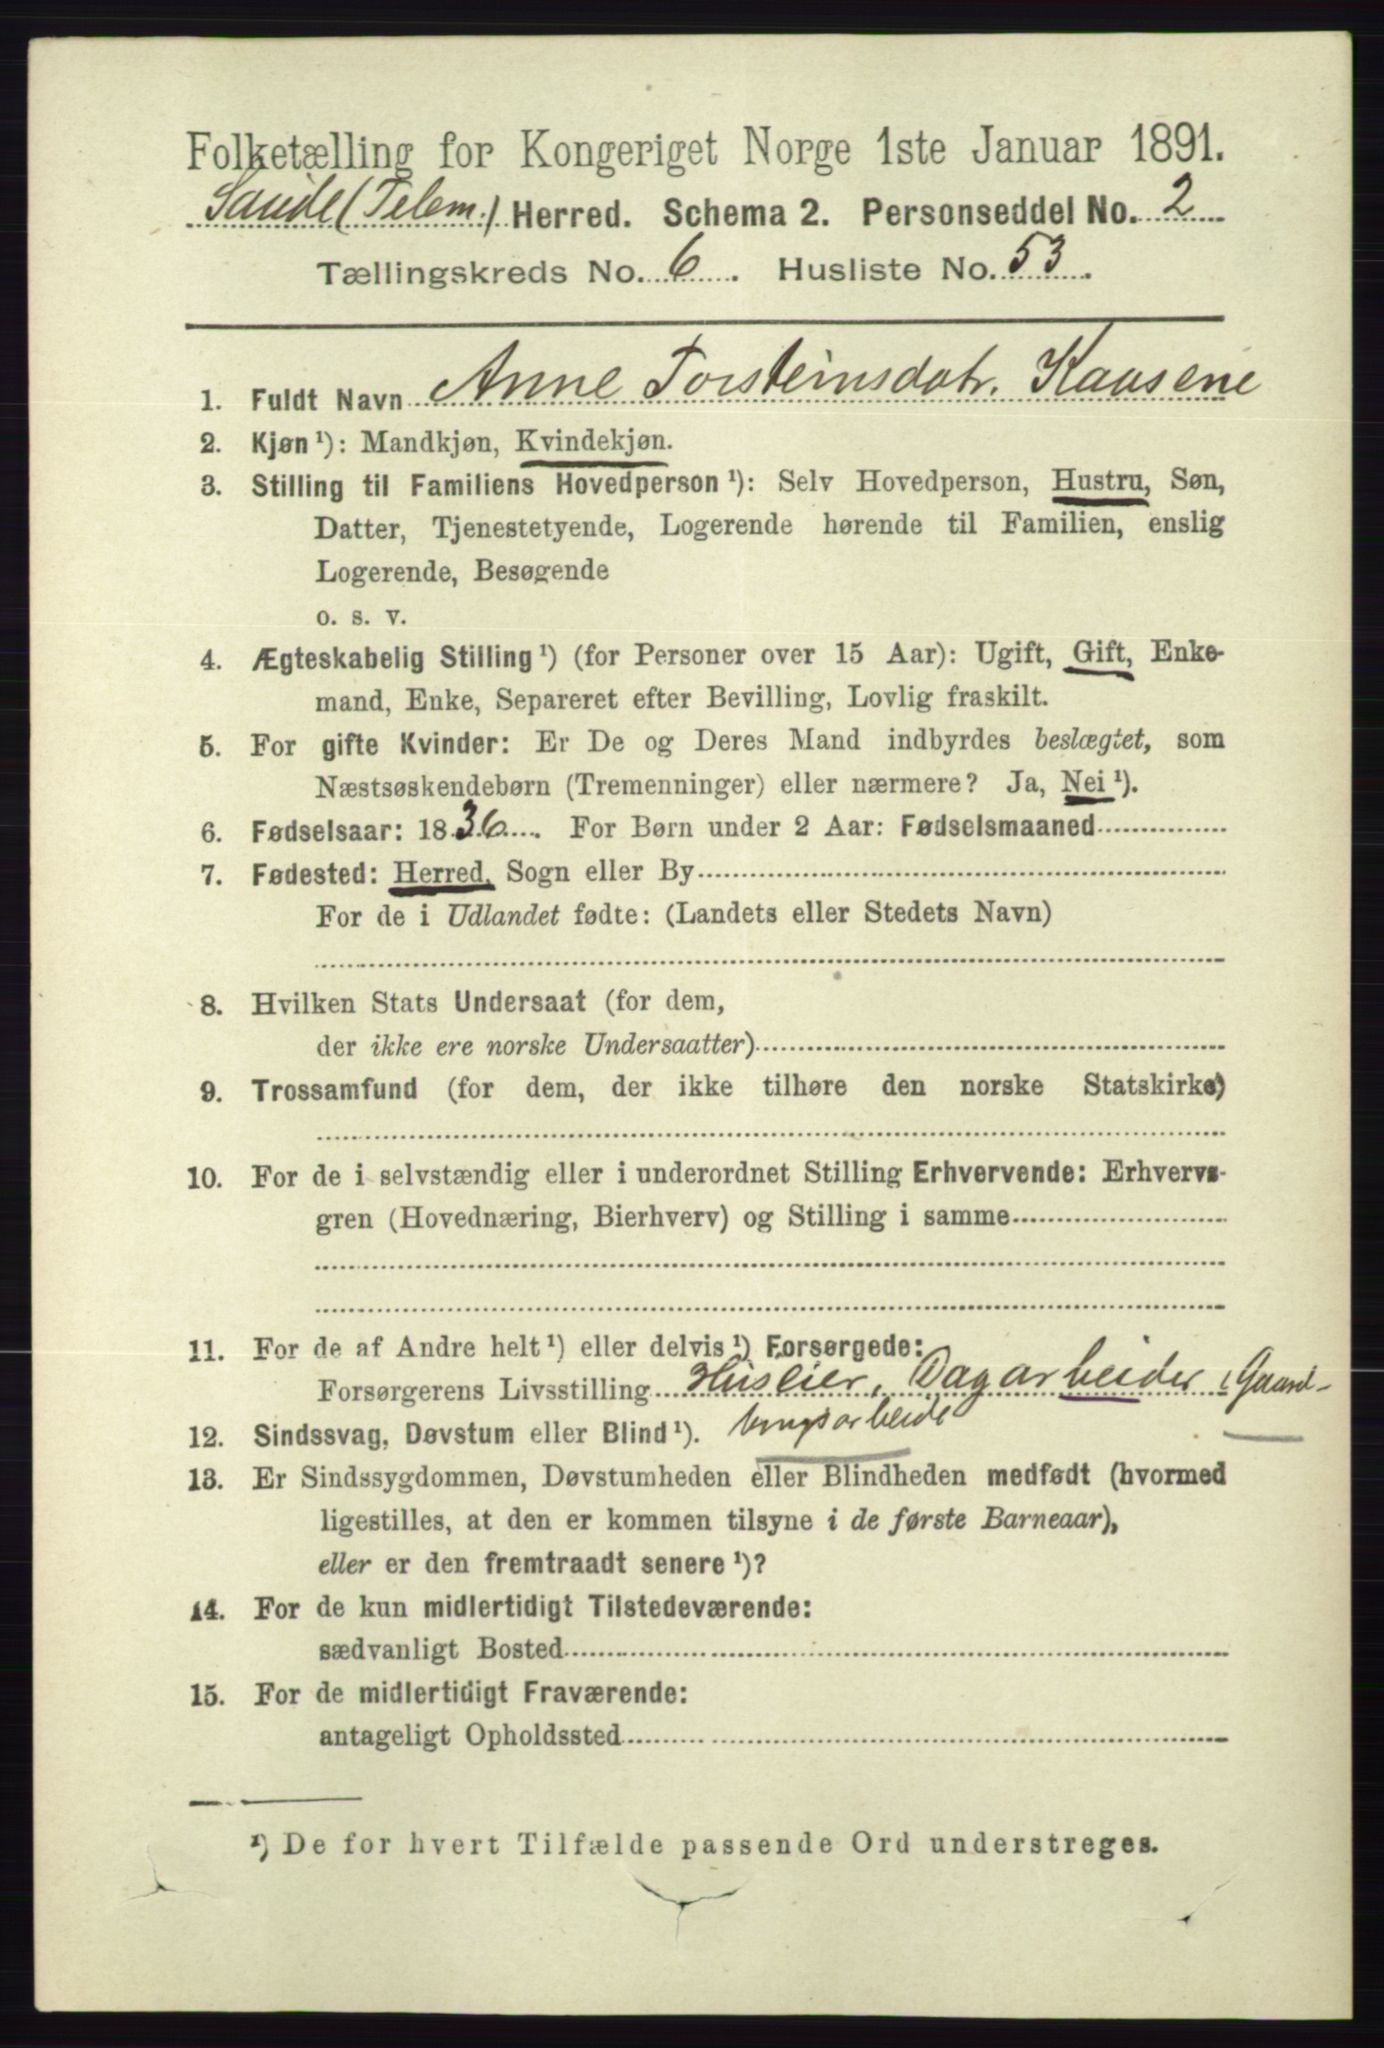 Folketælling for Kongeriget Norge 1ste Januar 1891.
Saude (Telem.) Herred. Schema 2. Personseddel No. 2
Tællingskreds No. 6. Husliste No. 53.
1. Fuldt Navn Anne Torsteinsdatr. Kaasene
2. Kjøn ¹): Mandkjøn, Kvindekjøn.
3. Stilling til Familiens Hovedperson ¹): Selv Hovedperson, Hustru, Søn,
Datter, Tjenestetyende, Logerende hørende til Familien, enslig
Logerende, Besøgende
o. s. v.
4. Ægteskabelig Stilling ¹) (for Personer over 15 Aar): Ugift, Gift, Enke-
mand, Enke, Separeret efter Bevilling, Lovlig fraskilt.
5. For gifte Kvinder: Er De og Deres Mand indbyrdes beslægtet, som
Næstsøskendebørn (Tremenninger) eller nærmere? Ja, Nei ¹).
6. Fødselsaar: 1836. For Børn under 2 Aar: Fødselsmaaned
7. Fødested: Herred, Sogn eller By
For de i Udlandet fødte: (Landets eller Stedets Navn)
8. Hvilken Stats Undersaat (for dem,
der ikke ere norske Undersaatter)
9. Trossamfund (for dem, der ikke tilhøre den norske Statskirke)
10. For de i selvstændig eller i underordnet Stilling Erhvervende: Erhvervs-
gren (Hovednæring, Bierhverv) og Stilling i samme
11. For de af Andre helt ¹) eller delvis ¹) Forsørgede:
Forsørgerens Livsstilling Huslier, Dagarbeider i Gaard-
12. Sindssvag, Døvstum eller Blind ¹). brugsarbeide
13. Er Sindssygdommen, Døvstumheden eller Blindheden medfødt (hvormed
ligestilles, at den er kommen tilsyne i de første Barneaar),
eller er den fremtraadt senere ¹)?
14. For de kun midlertidigt Tilstedeværende:
sædvanligt Bosted
15. For de midlertidigt Fraværende:
antageligt Opholdssted
¹) De for hvert Tilfælde passende Ord understreges.